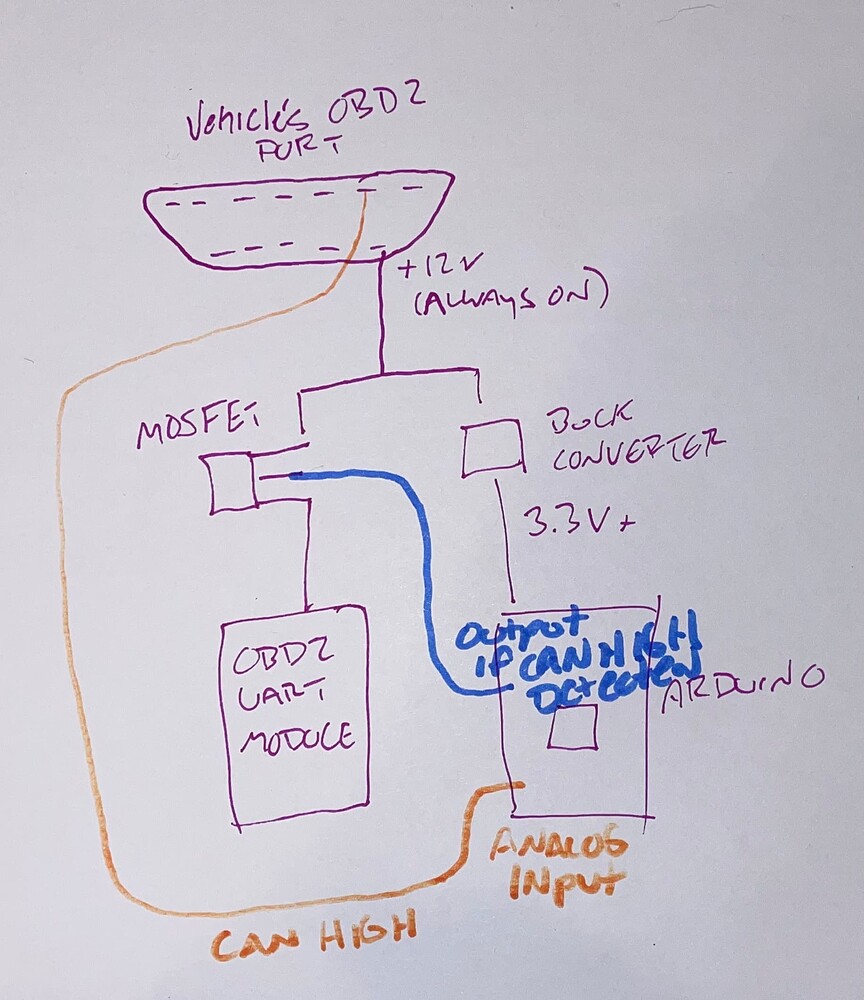 Vehicle's OBD2
PORT
+12V
(ALWAYS ON)
MOSFET
BUCK
CONVERTER
3.3V+
OUTPUT
IF CAN HIGH
DETECTED
ARDUINO
OBD2
UART
MODULE
ANALOG
INPUT
CAN HIGH